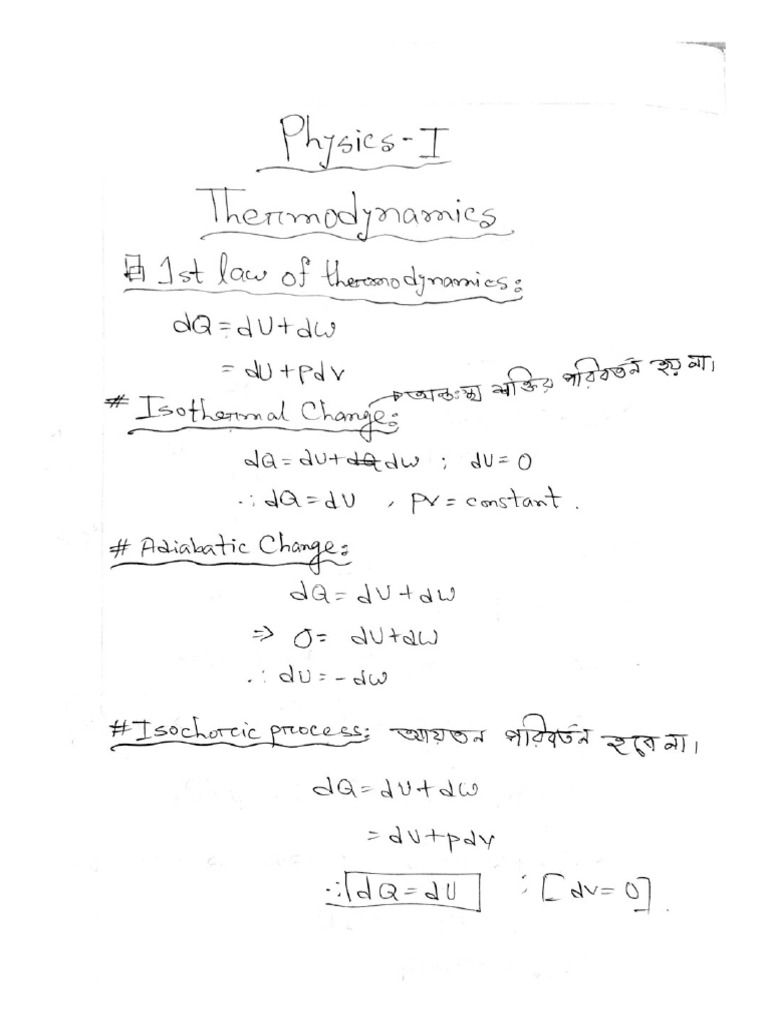 Physics-I
Thermodynamics
1st law of thermodynamics:
dQ = dU + dW
= dU + pdv
# Isothermal Change: → অন্তঃস্থ শক্তির পরিবর্তন হয় না।
dQ = dU + dQ dW ; dU = 0
∴ dQ = dU , PV = constant.
# Adiabatic Change:
dQ = dU + dW
⇒ 0 = dU + dW
∴ dU = - dW
# Isochoric process: আয়তন পরিবর্তন হবে না।
dQ = dU + dW
= dU + pdv
∴ dQ = dU ; [dv = 0].